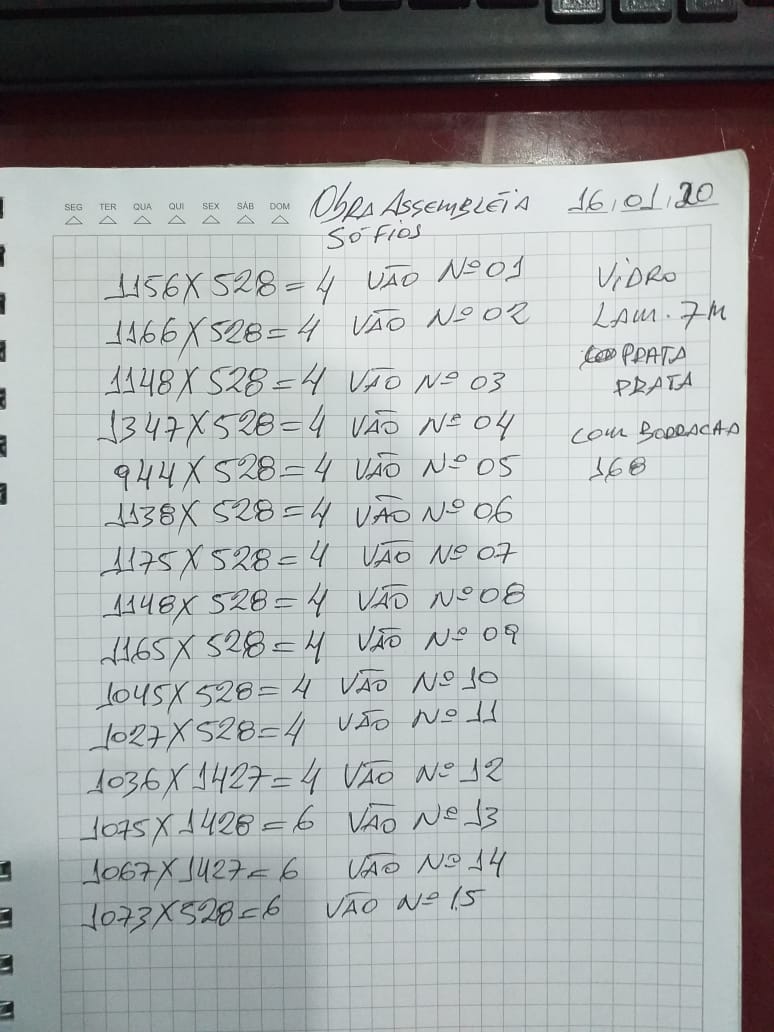 SEG TER QUA QUI SEX SÁB DOM
OBRA ASSEMBLÉIA 16.01.20
SÓ FIOS
1156 X 528 = 4 VÃO Nº 01
1166 X 528 = 4 VÃO Nº 02
1148 X 528 = 4 VÃO Nº 03
1347 X 528 = 4 VÃO Nº 04
944 X 528 = 4 VÃO Nº 05
1138 X 528 = 4 VÃO Nº 06
1175 X 528 = 4 VÃO Nº 07
1148 X 528 = 4 VÃO Nº 08
1165 X 528 = 4 VÃO Nº 09
1045 X 528 = 4 VÃO Nº 10
1027 X 528 = 4 VÃO Nº 11
1036 X 1427 = 4 VÃO Nº 12
1075 X 1428 = 6 VÃO Nº 13
1067 X 1427 = 6 VÃO Nº 14
1073 X 528 = 6 VÃO Nº 15
VIDRO
LAM. 7M
PRATA
PRATA
COM BORRACAA
168